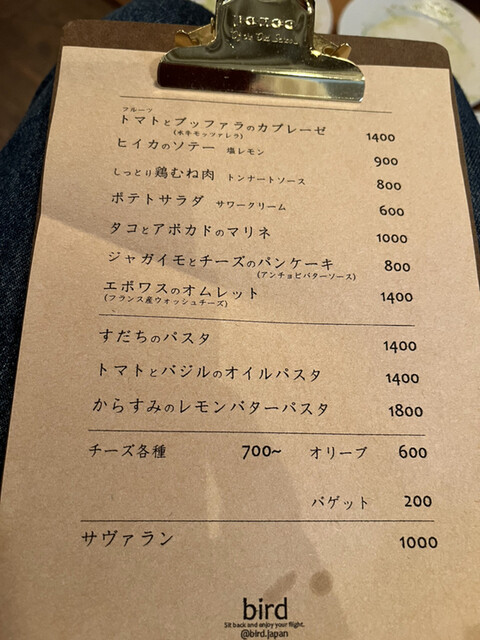 フルーツ
トマトとブッファラのカプレーゼ 1400
(水牛モッツァレラ)
ヒイカのソテー 塩レモン 900
しっとり鶏むね肉 トンナートソース 800
ポテトサラダ サワークリーム 600
タコとアボカドのマリネ 1000
ジャガイモとチーズのパンケーキ 800
(アンチョビバターソース)
エポワスのオムレット 1400
(フランス産ウォッシュチーズ)
すだちのパスタ 1400
トマトとバジルのオイルパスタ 1400
からすみのレモンバターパスタ 1800
チーズ各種 700~ オリーブ 600
バゲット 200
サヴァラン 1000
bird
Sit back and enjoy your flight.
@bird.japan